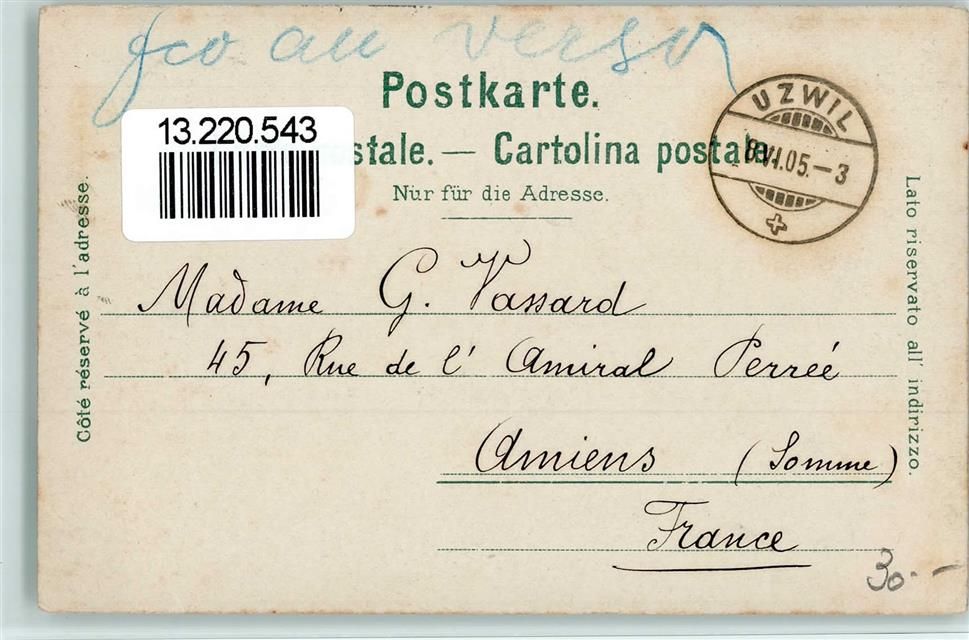 fco au verso
Postkarte.
13.220.543
stale. — Cartolina postale.
Nur für die Adresse.
UZWIL
8.VI.05.–3
Côté réservé à l'adresse.
Lato riservato all' indirizzo.
Madame G. Vassard
45, Rue de l' Amiral Perrée
Amiens (Somme)
France
30.–